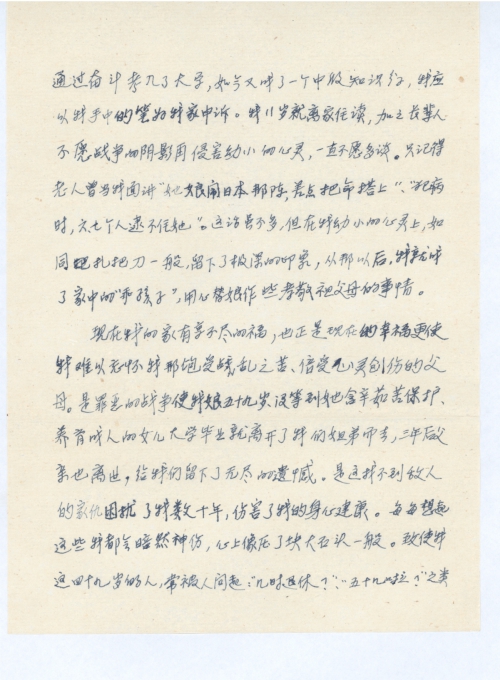 通过奋斗考入了大学，如今又成了一个中级知识分，我应
以我手中的笔为我家申诉。我11岁就离家住读，加之长辈人
不愿战争的阴影再侵害幼小的心灵，一直不愿多谈。只记得
老人曾当我面讲“她娘闹日本那阵，差点把命搭上”、“犯病
时，六七个人逮不住她”。这话虽不多，但在我幼小的心灵上，如
同扎把刀一般，留下了极深的印象，从那以后，我就成
了家中的“乖孩子”，用心替娘作些孝敬祖父母的事情。
现在我的家有享不尽的福，也正是现在的幸福更使
我难以忘怀我那饱受战乱之苦、倍受心灵创伤的父
母。是罪恶的战争使我娘五十九岁没等到她含辛茹苦保护、
养育成人的女儿大学毕业就离开了我们姐弟而去，三年后父
亲也离世，给我们留下了无尽的遗憾。是这找不到敌人
的家仇困扰了我数十年，伤害了我的身心健康。每每想起
这些我都会暗然神伤，心上像压了块大石头一般。致使我
这四十九岁的人，常被人问起：“几时退休？”、“五十九啦？”之类